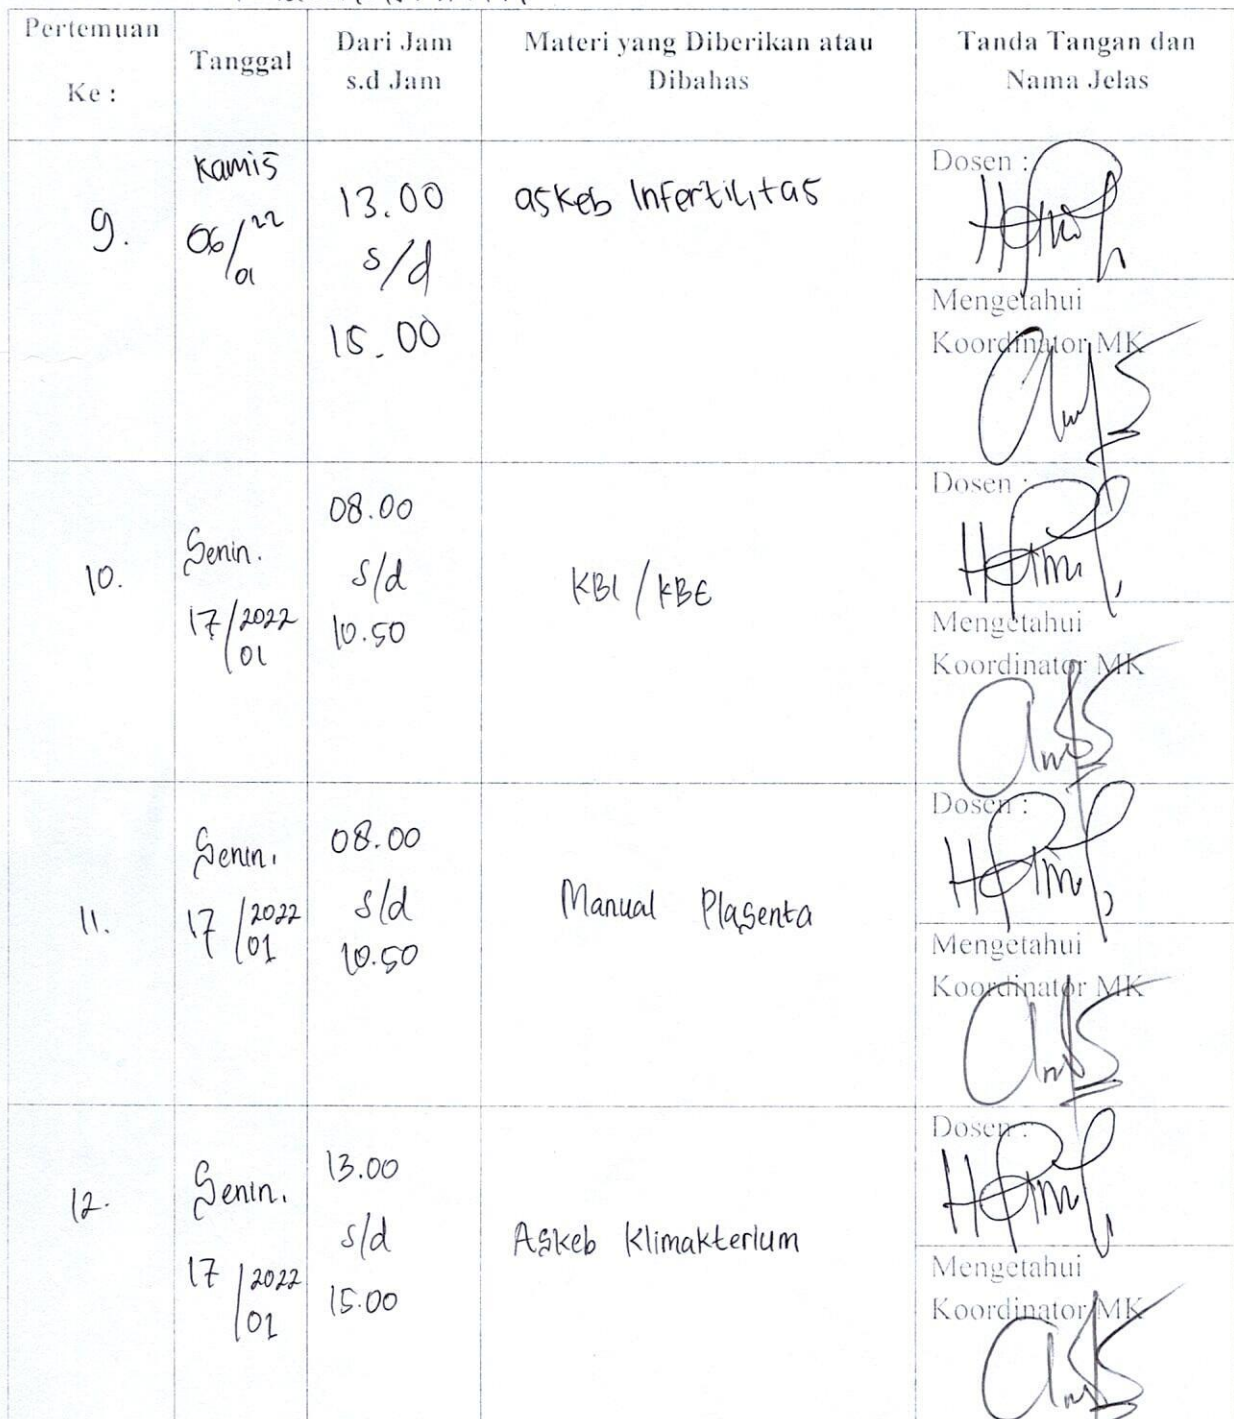 Pertemuan
Ke :
Tanggal
Dari Jam
s.d Jam
Materi yang Diberikan atau
Dibahas
Tanda Tangan dan
Nama Jelas
9.
Kamis
06/22
01
13.00
s/d
15.00
askeb Infertilitas
Dosen :
Mengetahui
Koordinator MK
10.
Senin.
17/2022
01
08.00
s/d
10.50
KBI / KBE
Dosen :
Mengetahui
Koordinator MK
11.
Senin.
17/2022
01
08.00
s/d
10.50
Manual Plasenta
Dosen :
Mengetahui
Koordinator MK
12.
Senin.
17/2022
01
13.00
s/d
15.00
Askeb Klimakterium
Dosen :
Mengetahui
Koordinator MK